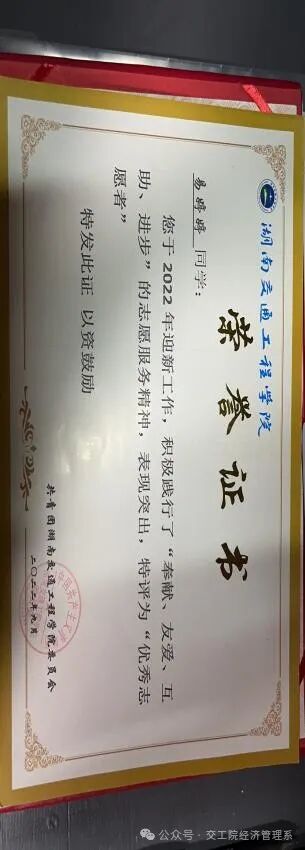 湖南交通工程学院
荣誉证书
易婷婷 同学：
您于2022年迎新工作，积极践行了“奉献、友爱、互
助、进步”的志愿服务精神，表现突出，特评为“优秀志
愿者”
特发此证 以资鼓励
共青团湖南交通工程学院委员会
二〇二二年九月
公众号 · 交工院经济管理系